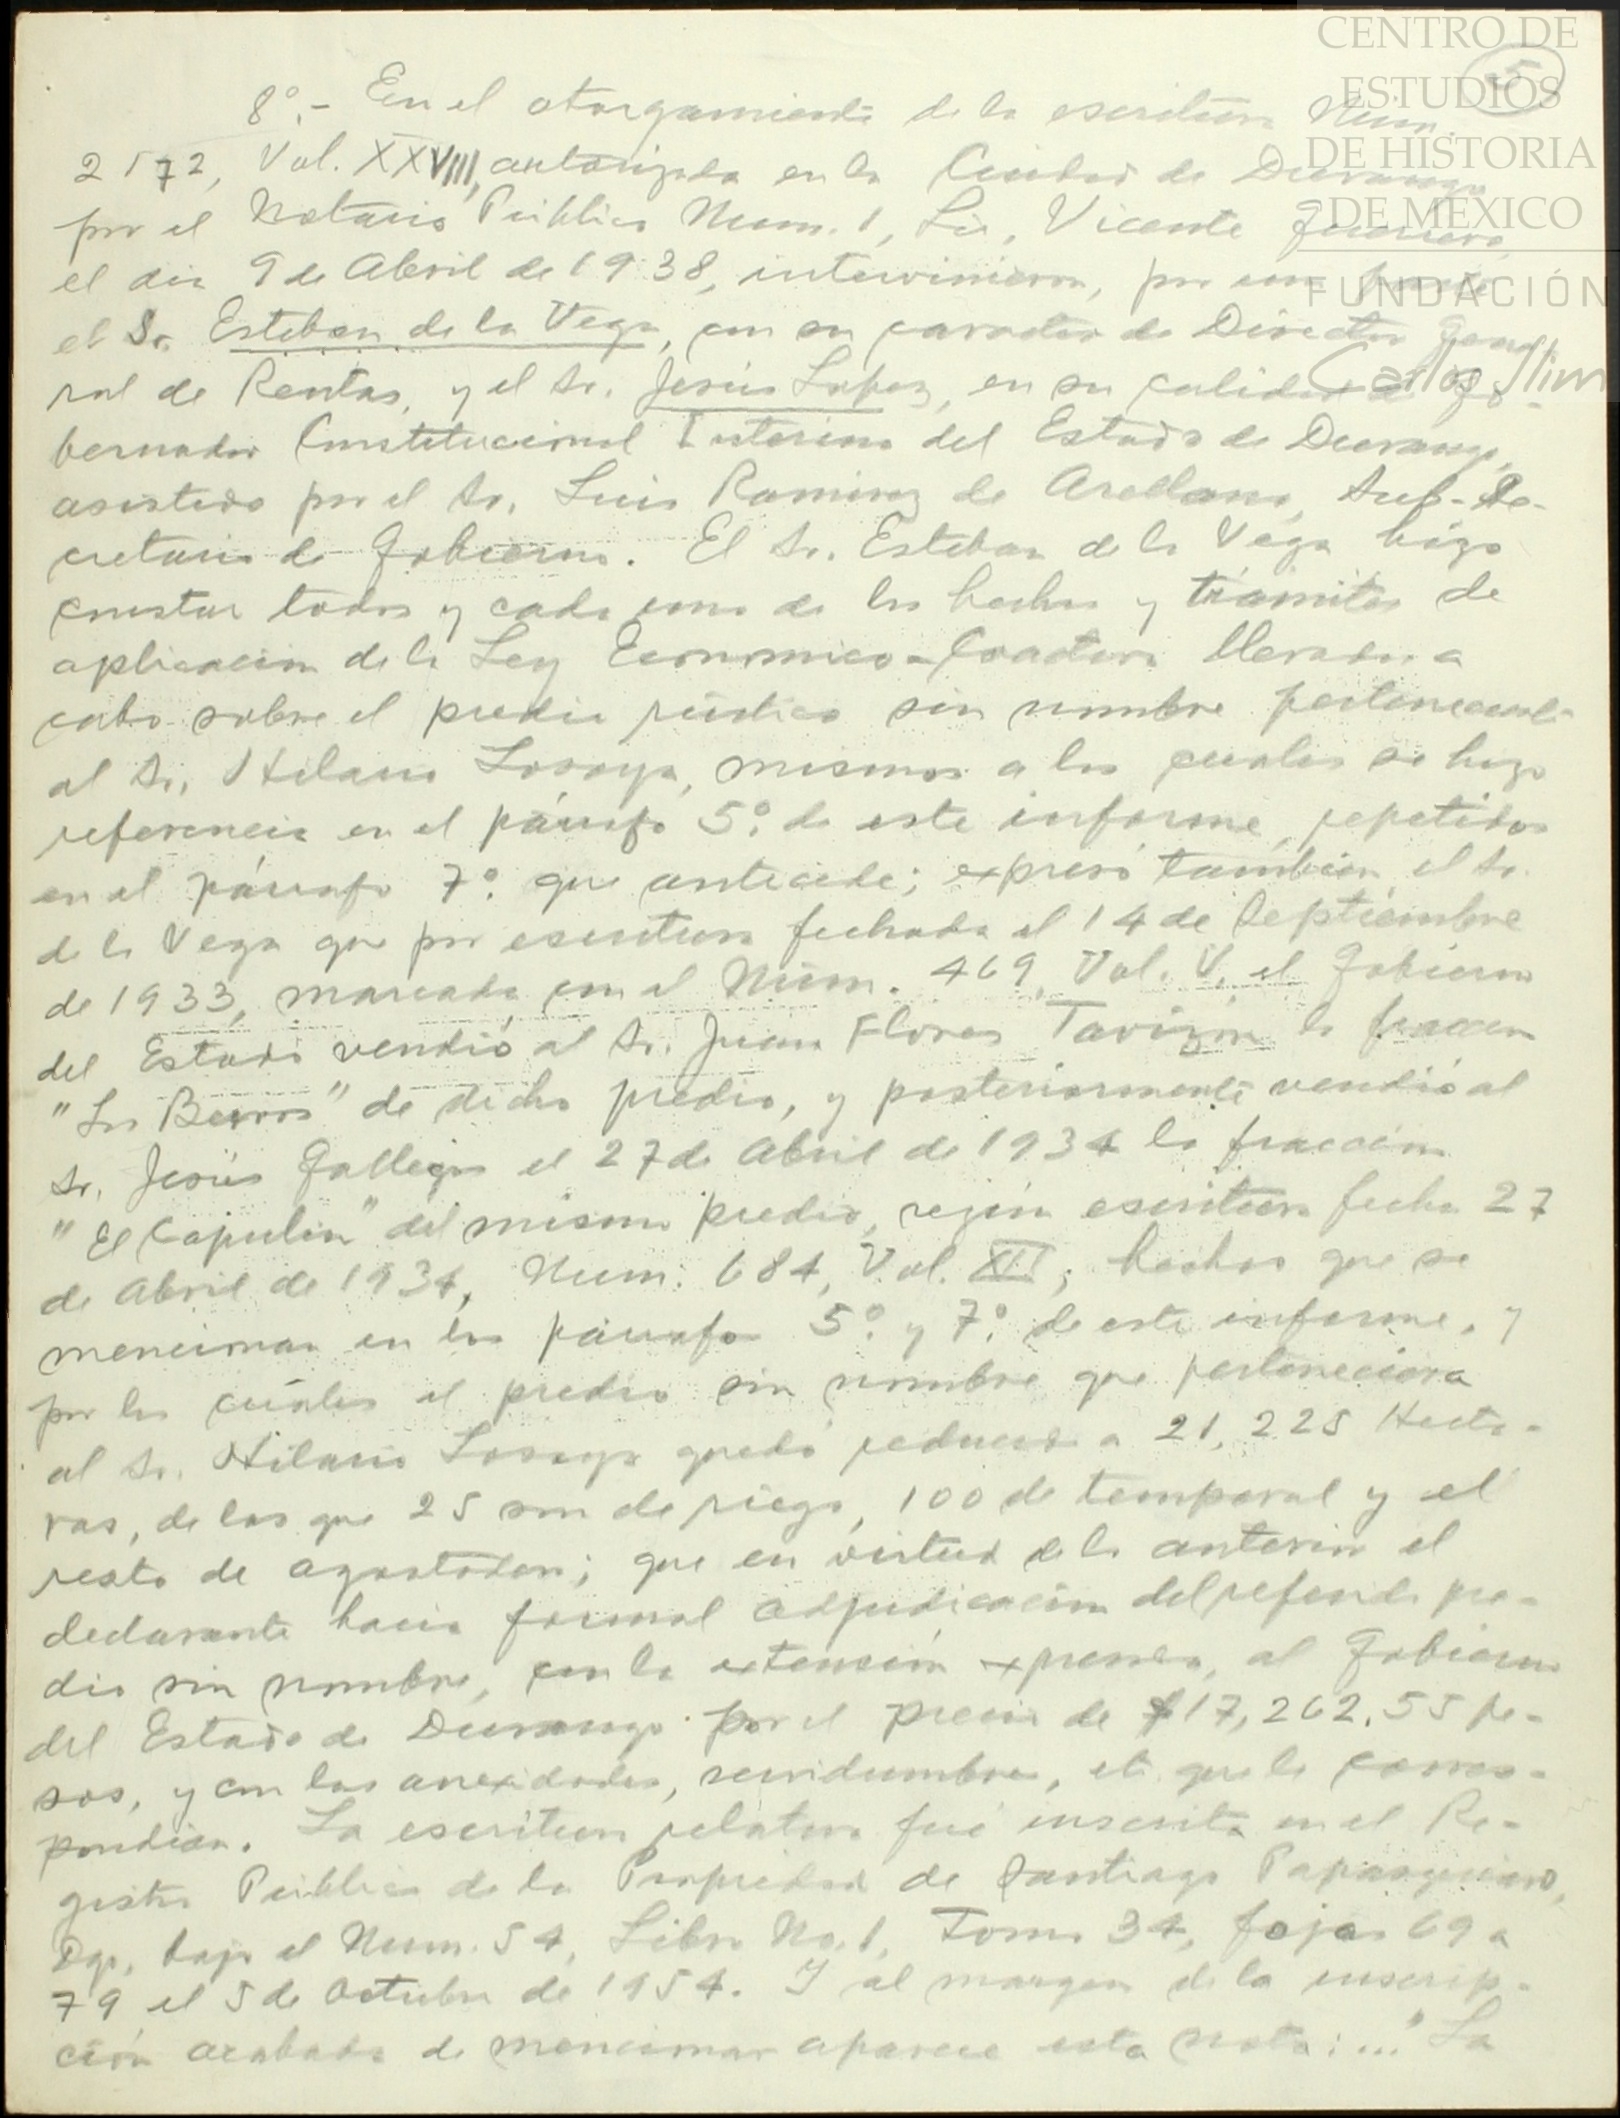 CENTRO DE
ESTUDIOS
DE HISTORIA
DE MÉXICO
FUNDACIÓN
Carlos Slim
8º.- En el otorgamiento de la escritura Núm.
2172, Vol. XXVIII, autorizada en la Ciudad de Durango
por el Notario Público Num. 1, Lic. Vicente Guerrero,
el día 9 de Abril de 1938, intervinieron, por una parte
el Sr. Esteban de la Vega, con su caracter de Director Gene-
ral de Rentas, y el Sr. Jesús Lopez, en su calidad de Go-
bernador Constitucional Interino del Estado de Durango,
asistido por el Sr. Luis Ramirez de Arellano, Sub-Se-
cretario de Gobierno. El Sr. Esteban de la Vega hizo
constar todos y cada uno de los hechos y trámites de
aplicación de la Ley Economico-Coactiva llevados a
cabo sobre el predio rústico sin nombre perteneciente
al Sr. Hilario Lozoya, mismos a los cuales se hizo
referencia en el párrafo 5º. de este informe, repetidos
en el párrafo 7º. que antecede; expresó también el Sr.
de la Vega que por escritura fechada el 14 de Septiembre
de 1933, marcada con el Núm. 469, Vol. V, el Gobierno
del Estado vendió al Sr. Juan Flores Tavizón la fracción
"Los Berros" de dicho predio, y posteriormente vendió al
Sr. Jesús Gallegos el 27 de Abril de 1934 la fracción
"El Capulín" del mismo predio, según escritura fecha 27
de Abril de 1934, Num. 684, Vol. XII; hechos que se
mencionan en los párrafos 5º. y 7º. de este informe, y
por los cuales el predio sin nombre que perteneciera
al Sr. Hilario Lozoya quedó reducido a 21,225 Hectá-
ras, de las que 25 son de riego, 100 de temporal y el
resto de agostadero; que en virtud de lo anterior el
declarante hacía formal adjudicación del referido pre-
dio sin nombre, con la extensión expresada, al Gobierno
del Estado de Durango por el precio de $17,262.55 pe-
sos, y con las anexidades, servidumbres, etc que le corres-
pondían. La escritura relativa fué inscrita en el Re-
gistro Público de la Propiedad de Santiago Papasquiaro,
Dgo, bajo el Num. 54, Libro No. 1, Tomo 34, fojas 69 a
79 el 5 de Octubre de 1954. Y al margen de la inscrip-
ción acabada de mencionar aparece esta nota: ... "La